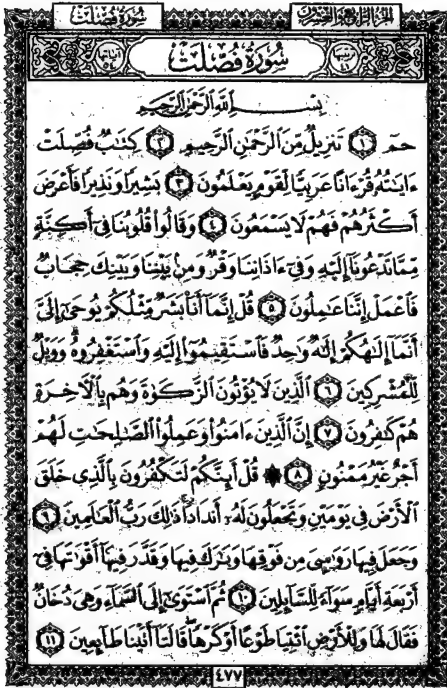 سُورَةُ فُصِّلَتْ الجُزْءُ الرَّابِعُ وَالعِشْرُون
سُورَةُ فُصِّلَتْ
بِسْمِ اللَّهِ الرَّحْمَٰنِ الرَّحِيمِ
حمٓ ١ تَنزِيلٌ مِّنَ ٱلرَّحْمَٰنِ ٱلرَّحِيمِ ٢ كِتَٰبٌ فُصِّلَتْ
ءَايَٰتُهُۥ قُرْءَانًا عَرَبِيًّا لِّقَوْمٍ يَعْلَمُونَ ٣ بَشِيرًا وَنَذِيرًا فَأَعْرَضَ
أَكْثَرُهُمْ فَهُمْ لَا يَسْمَعُونَ ٤ وَقَالُوا۟ قُلُوبُنَا فِىٓ أَكِنَّةٍ
مِّمَّا تَدْعُونَآ إِلَيْهِ وَفِىٓ ءَاذَانِنَا وَقْرٌ وَمِنۢ بَيْنِنَا وَبَيْنِكَ حِجَابٌ
فَٱعْمَلْ إِنَّنَا عَٰمِلُونَ ٥ قُلْ إِنَّمَآ أَنَا۠ بَشَرٌ مِّثْلُكُمْ يُوحَىٰٓ إِلَىَّ
أَنَّمَآ إِلَٰهُكُمْ إِلَٰهٌ وَٰحِدٌ فَٱسْتَقِيمُوٓا۟ إِلَيْهِ وَٱسْتَغْفِرُوهُ ۗ وَوَيْلٌ
لِّلْمُشْرِكِينَ ٦ ٱلَّذِينَ لَا يُؤْتُونَ ٱلزَّكَوٰةَ وَهُم بِٱلْءَاخِرَةِ
هُمْ كَٰفِرُونَ ٧ إِنَّ ٱلَّذِينَ ءَامَنُوا۟ وَعَمِلُوا۟ ٱلصَّٰلِحَٰتِ لَهُمْ
أَجْرٌ غَيْرُ مَمْنُونٍ ٨ ۞ قُلْ أَئِنَّكُمْ لَتَكْفُرُونَ بِٱلَّذِى خَلَقَ
ٱلْأَرْضَ فِى يَوْمَيْنِ وَتَجْعَلُونَ لَهُۥٓ أَندَادًا ۚ ذَٰلِكَ رَبُّ ٱلْعَٰلَمِينَ ٩
وَجَعَلَ فِيهَا رَوَٰسِىَ مِن فَوْقِهَا وَبَٰرَكَ فِيهَا وَقَدَّرَ فِيهَآ أَقْوَٰتَهَا فِىٓ
أَرْبَعَةِ أَيَّامٍ سَوَآءً لِّلسَّآئِلِينَ ١٠ ثُمَّ ٱسْتَوَىٰٓ إِلَى ٱلسَّمَآءِ وَهِىَ دُخَانٌ
فَقَالَ لَهَا وَلِلْأَرْضِ ٱئْتِيَا طَوْعًا أَوْ كَرْهًا قَالَتَآ أَتَيْنَا طَآئِعِينَ ١١
٤٧٧